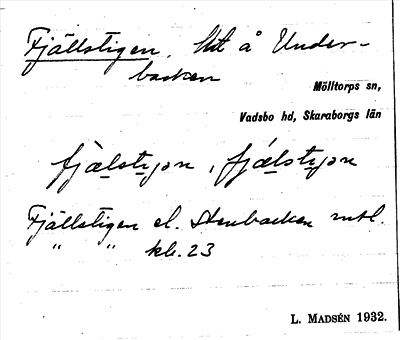 Fjällstigen. Ut å Under-
backen
Mölltorps sn,
Vadsbo hd, Skaraborgs län
fjälstıgən, fjälstıgən
Fjällstigen el. Stenbacken mtl.
" " kb. 23
L. MADSÉN 1932.